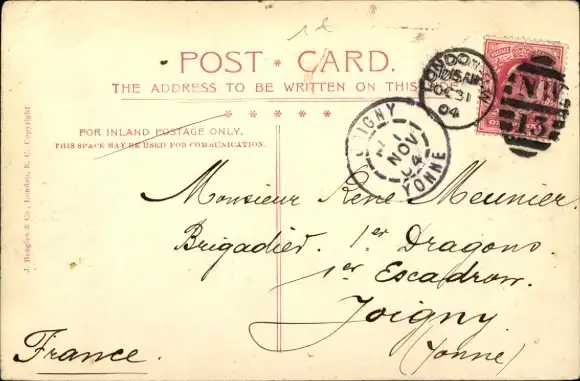 POST * CARD.
THE ADDRESS TO BE WRITTEN ON THIS
FOR INLAND POSTAGE ONLY.
THIS SPACE MAY BE USED FOR COMMUNICATION.
J. Beagles & Co., London, E. C. Copyright
LONDON. N.W
12.15 AM
OC 31
04
N.W
13
JOIGNY
1
NOV
04
YONNE
Monsieur René Meunier.
Brigadier. 1er Dragons.
1er Escadron.
Joigny
(Yonne)
France.